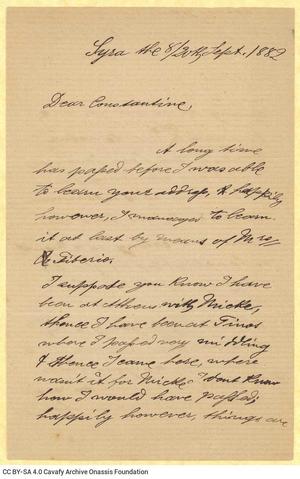 Syra the 8/20th Sept. 1882
Dear Constantine,
A long time
has passed before I was able
to learn your address, & happily
however, I managed to learn
it at last by means of Mrs
Tiberio.
I suppose you know I have
been at Athens with Micke,
thence I have been at Tinos
where I passed very middling
& thence I came here, where
wasn't it for Micke I dont know
how I would have passed;
happily however, things are
CC BY-SA 4.0 Cavafy Archive Onassis Foundation